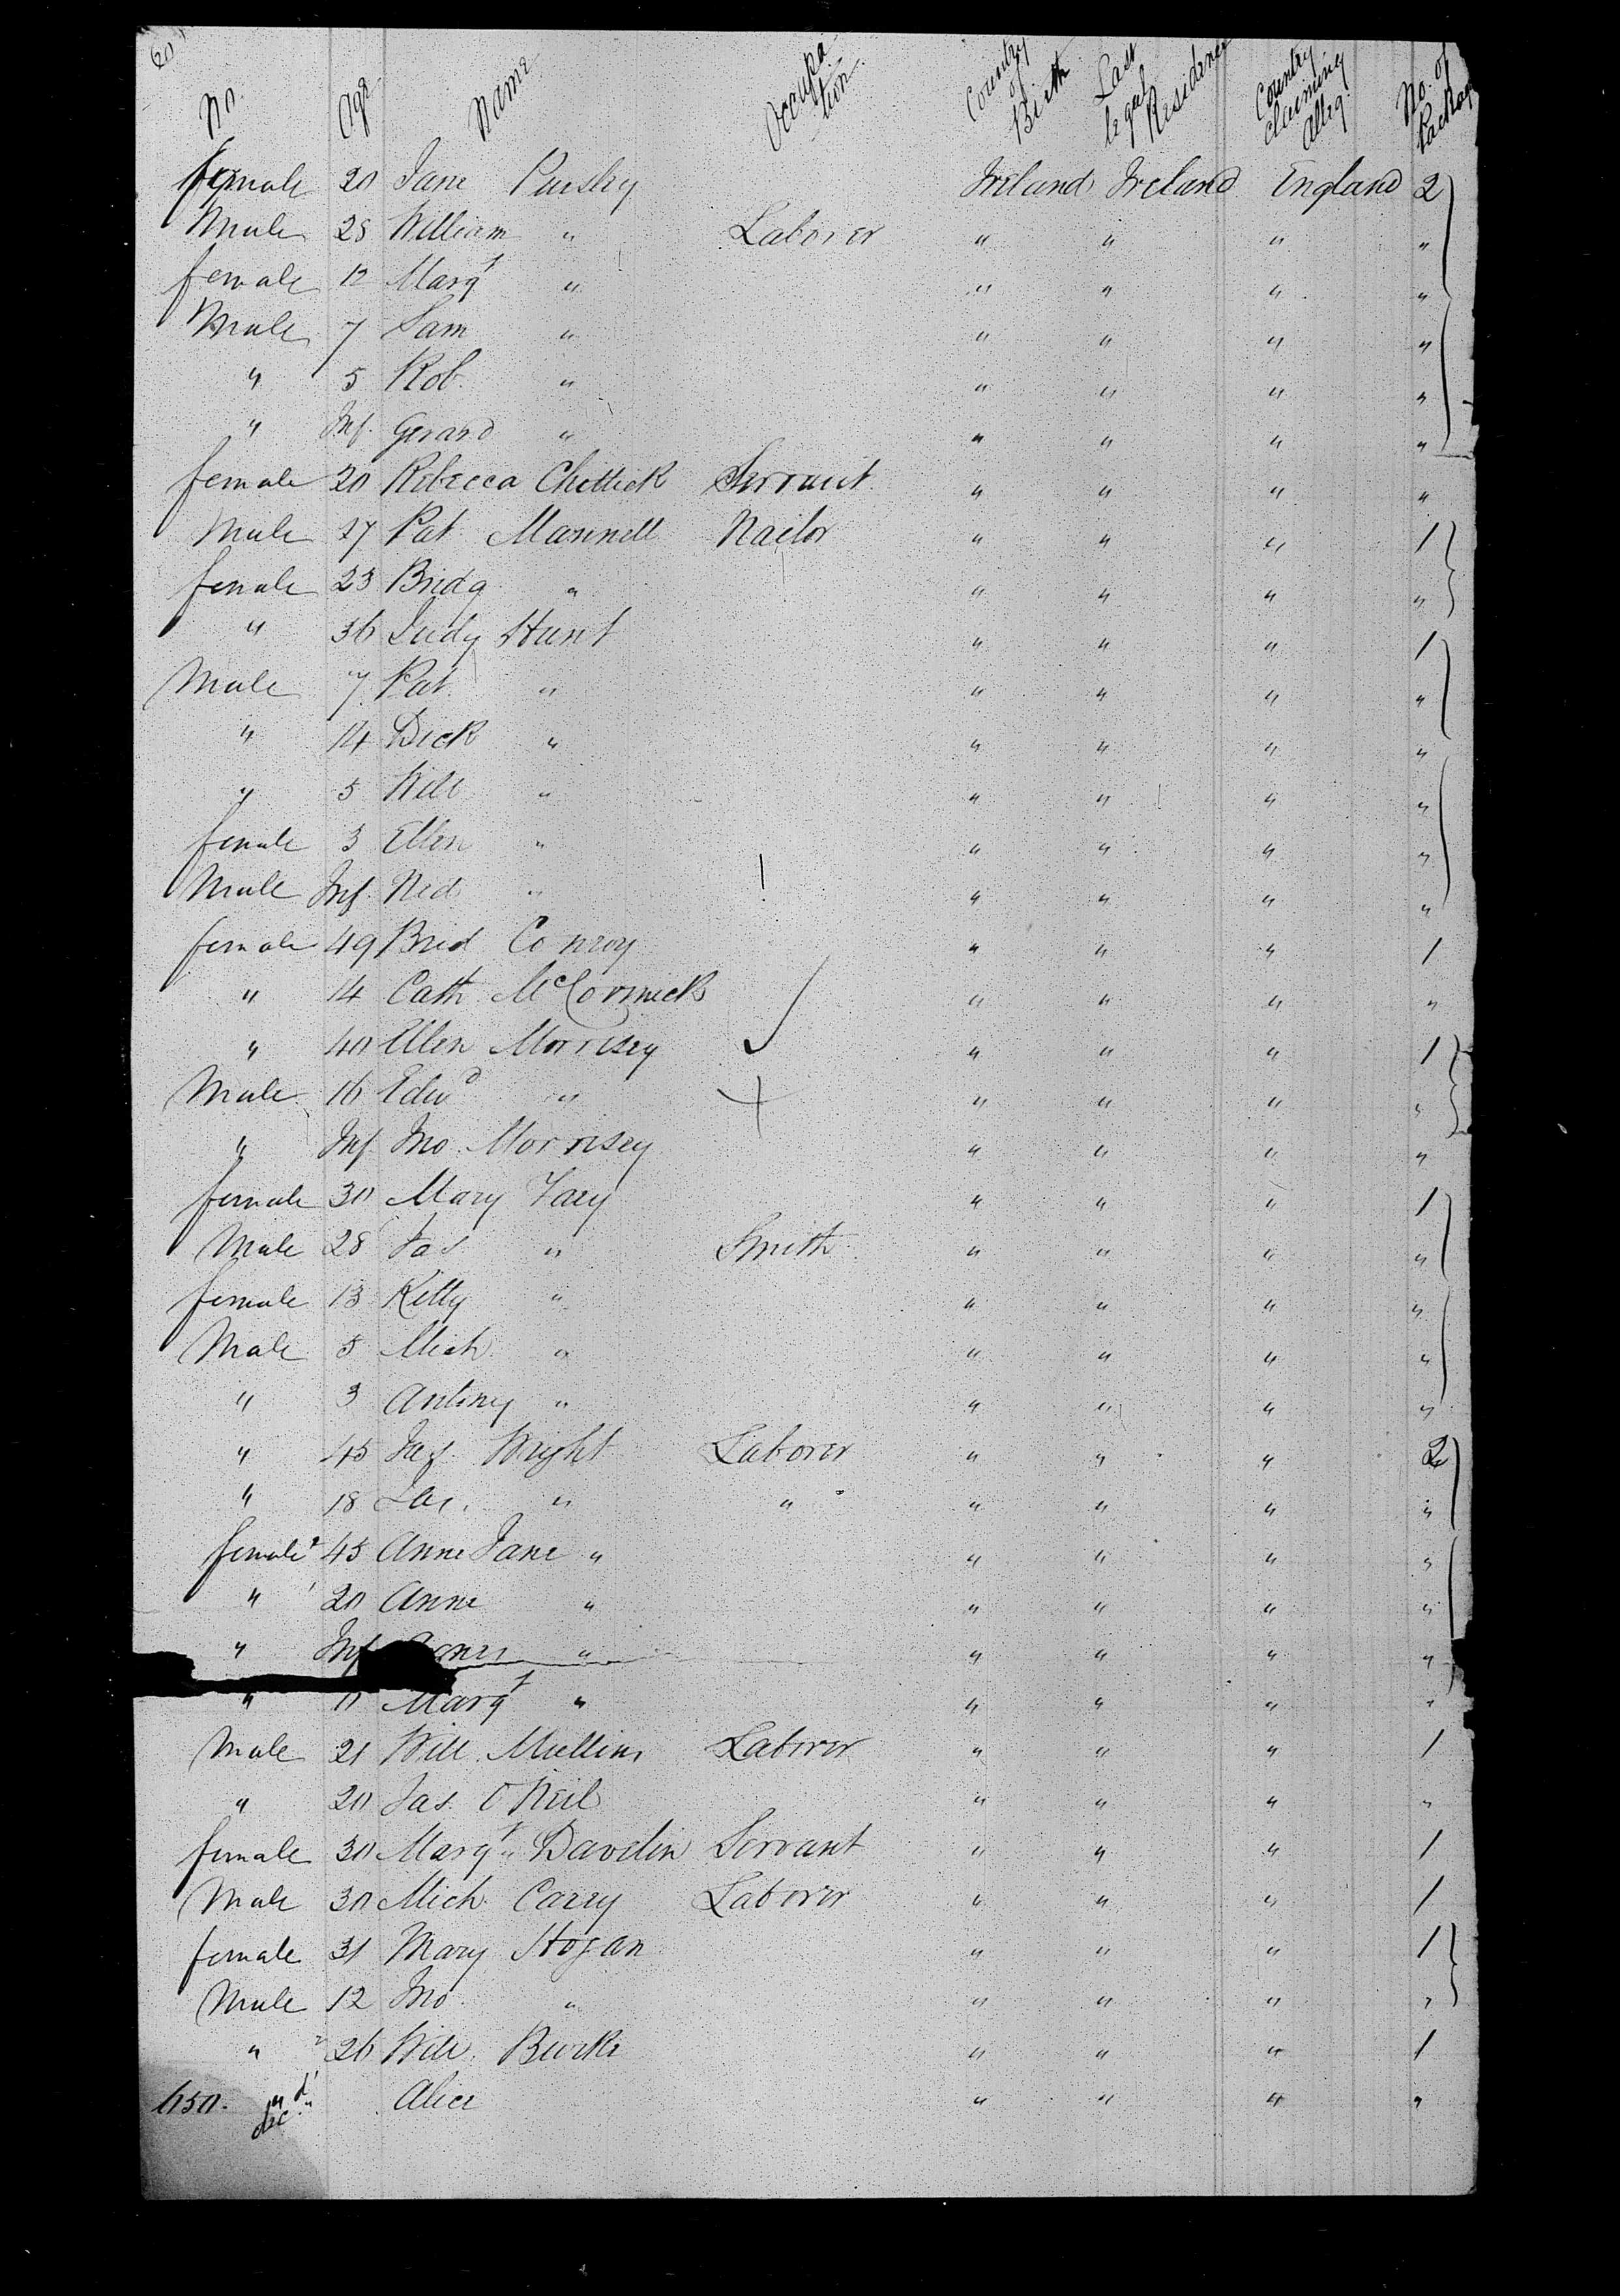 No. Age Name Occupation Country of Birth Last legal Residence Country claiming Alleg. No. of Package
female 20 Jane Pursley Ireland Ireland England 2
Male 28 William " Laborer " " " "
female 12 Margt " " " " "
Male 7 Sam " " " " "
" 5 Rob " " " " "
" Inf. Gerard " " " " "
female 20 Rebecca Chittick Servant " " " "
Male 27 Pat Mannell Nailor " " " 1
female 23 Bridg " " " " "
" 36 Judy Hunt " " " 1
Male 7 Pat " " " " "
" 14 Dick " " " " "
" 5 Will " " " " "
female 3 Ellen " " " " "
Male Inf. Ned " " " " "
female 49 Brid Conroy " " " 1
" 14 Cath McCormick " " " "
" 40 Ellen Morrisey " " " 1
Male 16 Edwd " " " " "
" Inf Jno Morrisey " " " "
female 30 Mary " " " 1
Male 28 Jas " Smith " " " "
female 13 Kitty " " " " "
Male 5 Mich " " " " "
" 3 Antony " " " " "
" 45 Jas. Wright Laborer " " " 2
" 18 " " " " " "
female 45 Anne Jane " " " " "
" 20 Anne " " " " "
" Inf Agnes " " " " "
" 11 Margt " " " " "
Male 21 Will Mullins Laborer " " " 1
" 20 Jas. O'Neil " " " "
female 30 Margt Davelin Servant " " " 1
Male 30 Mich Carey Laborer " " " 1
female 31 Mary Hogan " " " 1
Male 12 Jno " " " " "
" 26 Will Burke " " " 1
650. Alice " " " "